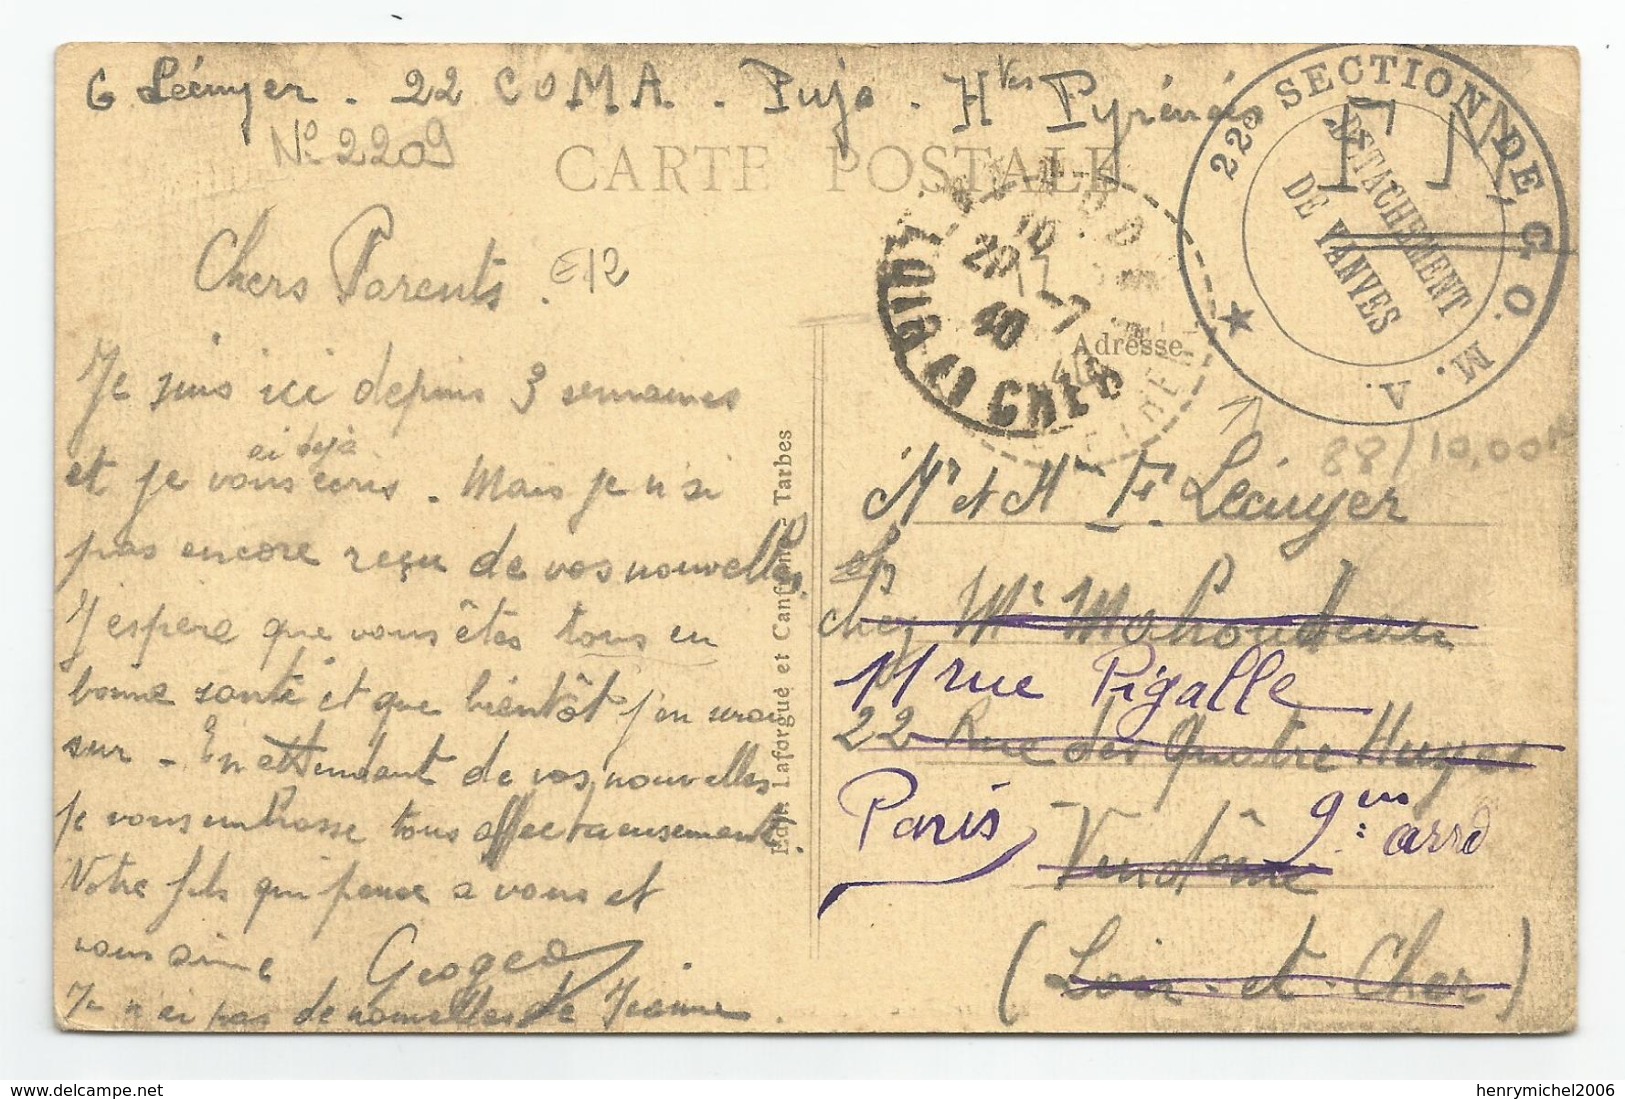 G Lécuyer. 22 COMA. Pujo. Htes Pyrénées
No 2209
CARTE POSTALE
F M
22e SECTION DE C. O. M. A.
DETACHEMENT
DE VANVES
LOIR ET CHER
20
-7
40
Adresse
Chers Parents.
E12
Je suis ici depuis 3 semaines
et je vous ai déjà écris. Mais je n'ai
pas encore reçu de vos nouvelles.
J'espère que vous êtes tous en
bonne santé et que bientôt j'en serai
sur. En attendant de vos nouvelles
je vous embrasse tous affectueusement.
Votre fils qui pense a vous et
vous aime Georges
Je n'ai pas de nouvelles de Jeanne.
Edit. Laforgue et Tarbes
88/10,00
Mr et Mme F. Lécuyer
chez Mr
11 rue Pigalle
22 Rue des Quatre Huyes
Paris 9me arrd
Vendôme
(Loir-et-Cher)
delcampe.net
henrymichel2006